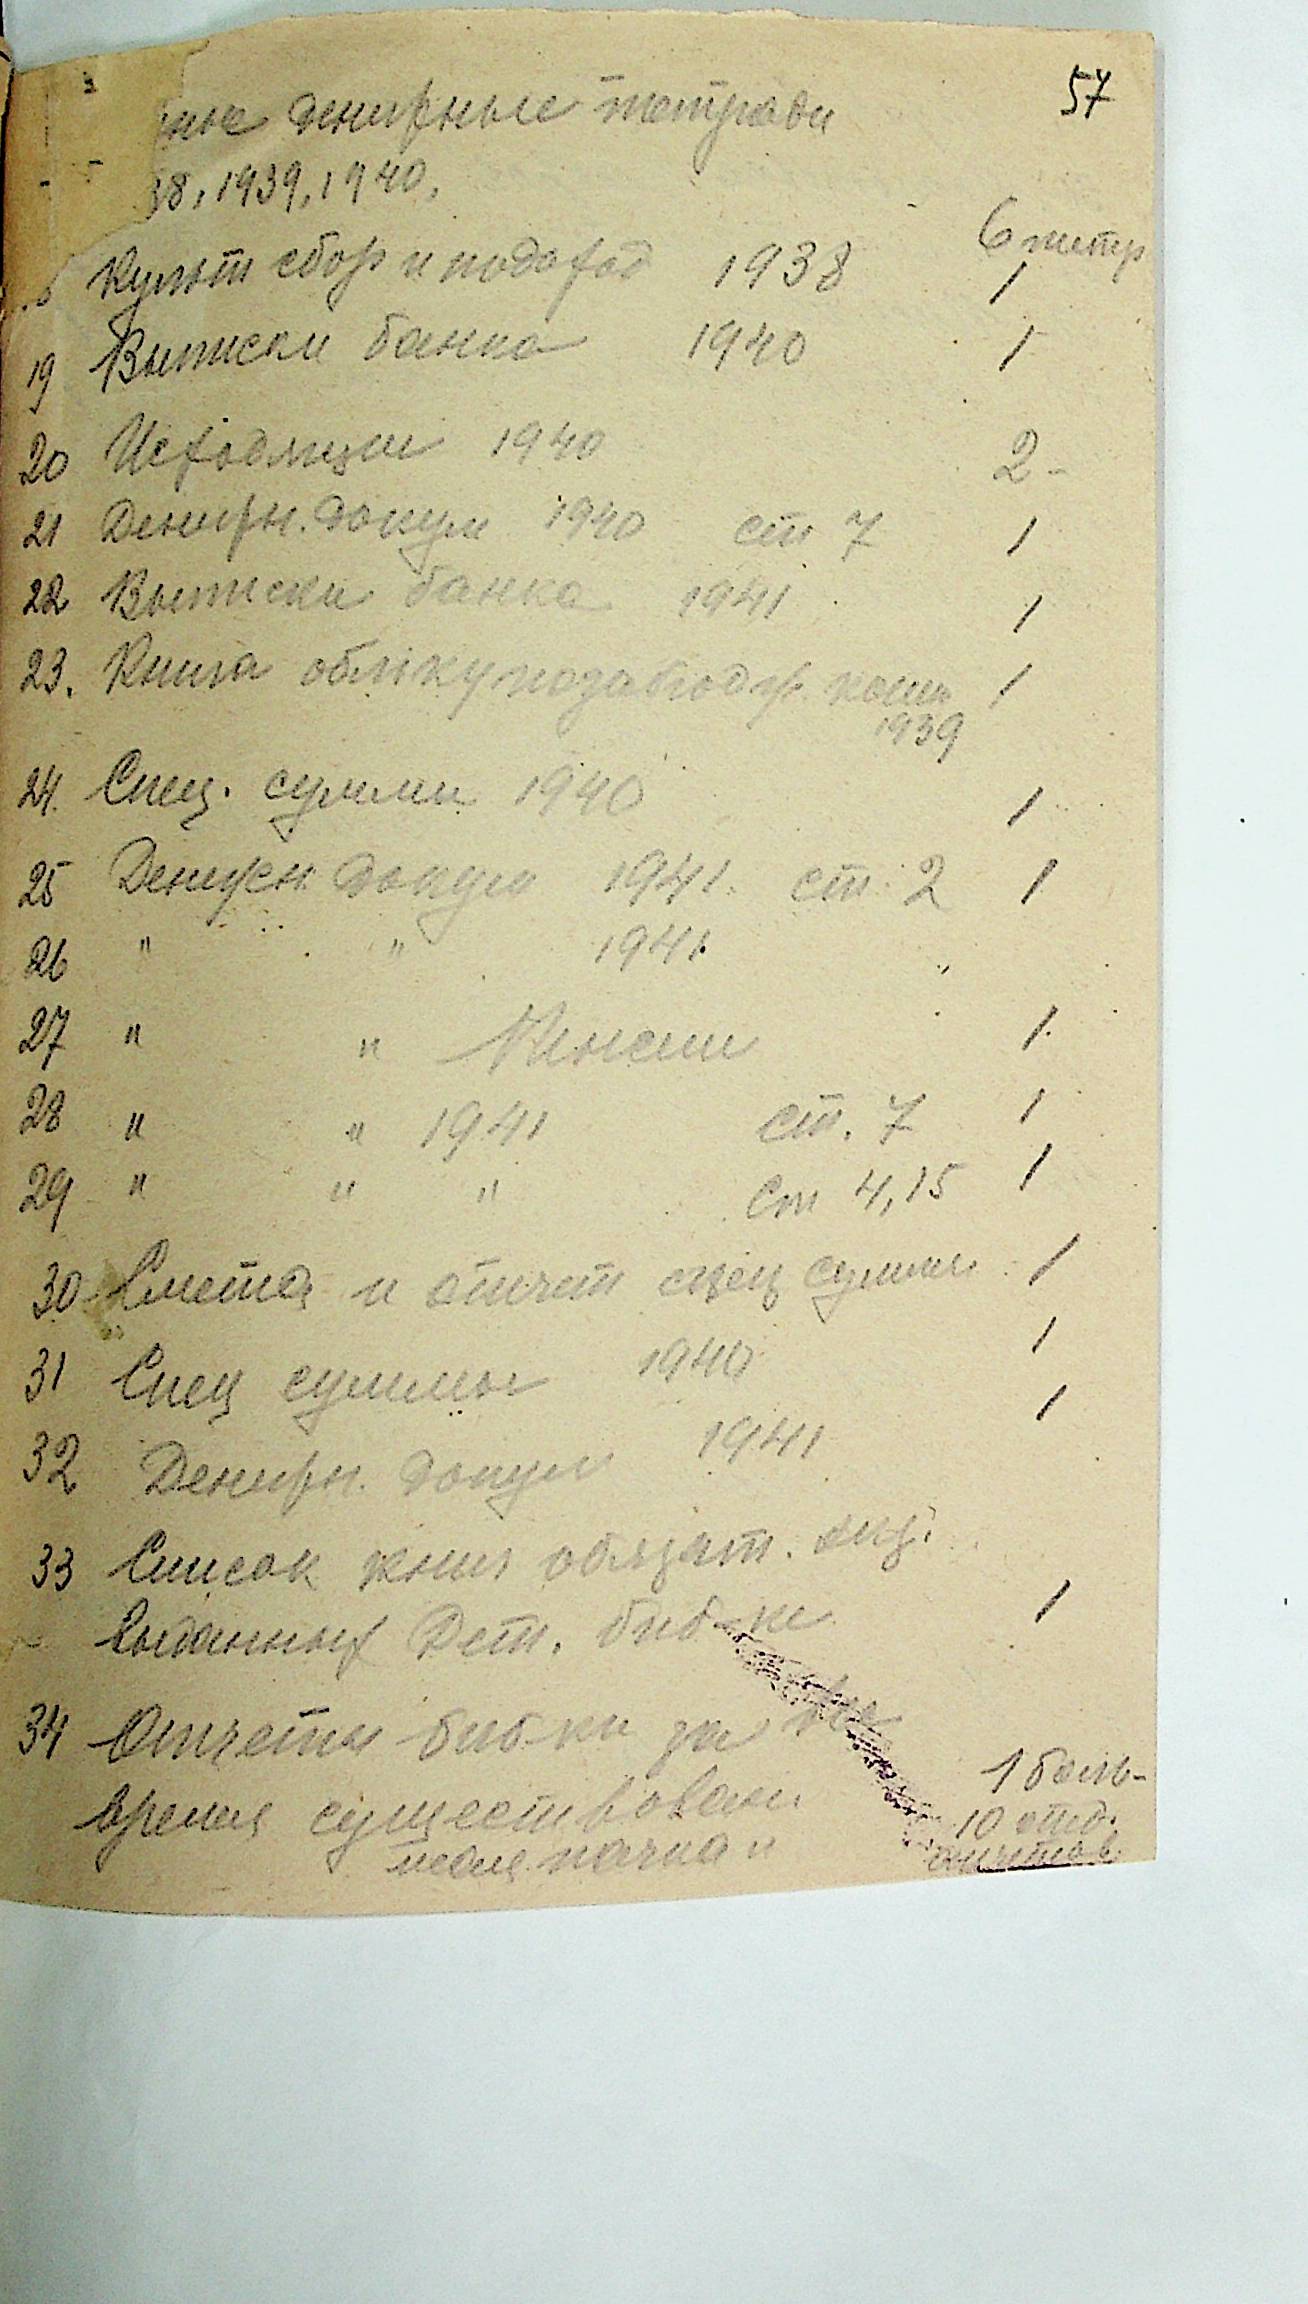 57
ные денежные тетради
38, 1939, 1940,
6 тетр
Культ сбор и подоход 1938 1
19 Выписки банка 1940 1
20 Исходящие 1940 2 -
21 Денежн. докум 1940 ст 7 1
22 Выписки банка 1941 1
23. Книга обліку позабюдж. кошт 1
1939
24. Спец. суммы 1940 1
25 Денежн докум 1941 ст. 2 1
26 " " 1941
27 " " Пенсии 1
28 " " 1941 ст. 7 1
29 " " " Ст 4, 15 1
30 Смета и отчет спец суммы 1
31 Спец суммы 1940 1
32 Денежн. докум 1941 1
33 Список книг обязат. экз.
выданных Дет. биб-ке 1
34 Отчеты биб-ки за все
время существован. 1 боль-
пачка 10 отд.
отчетов